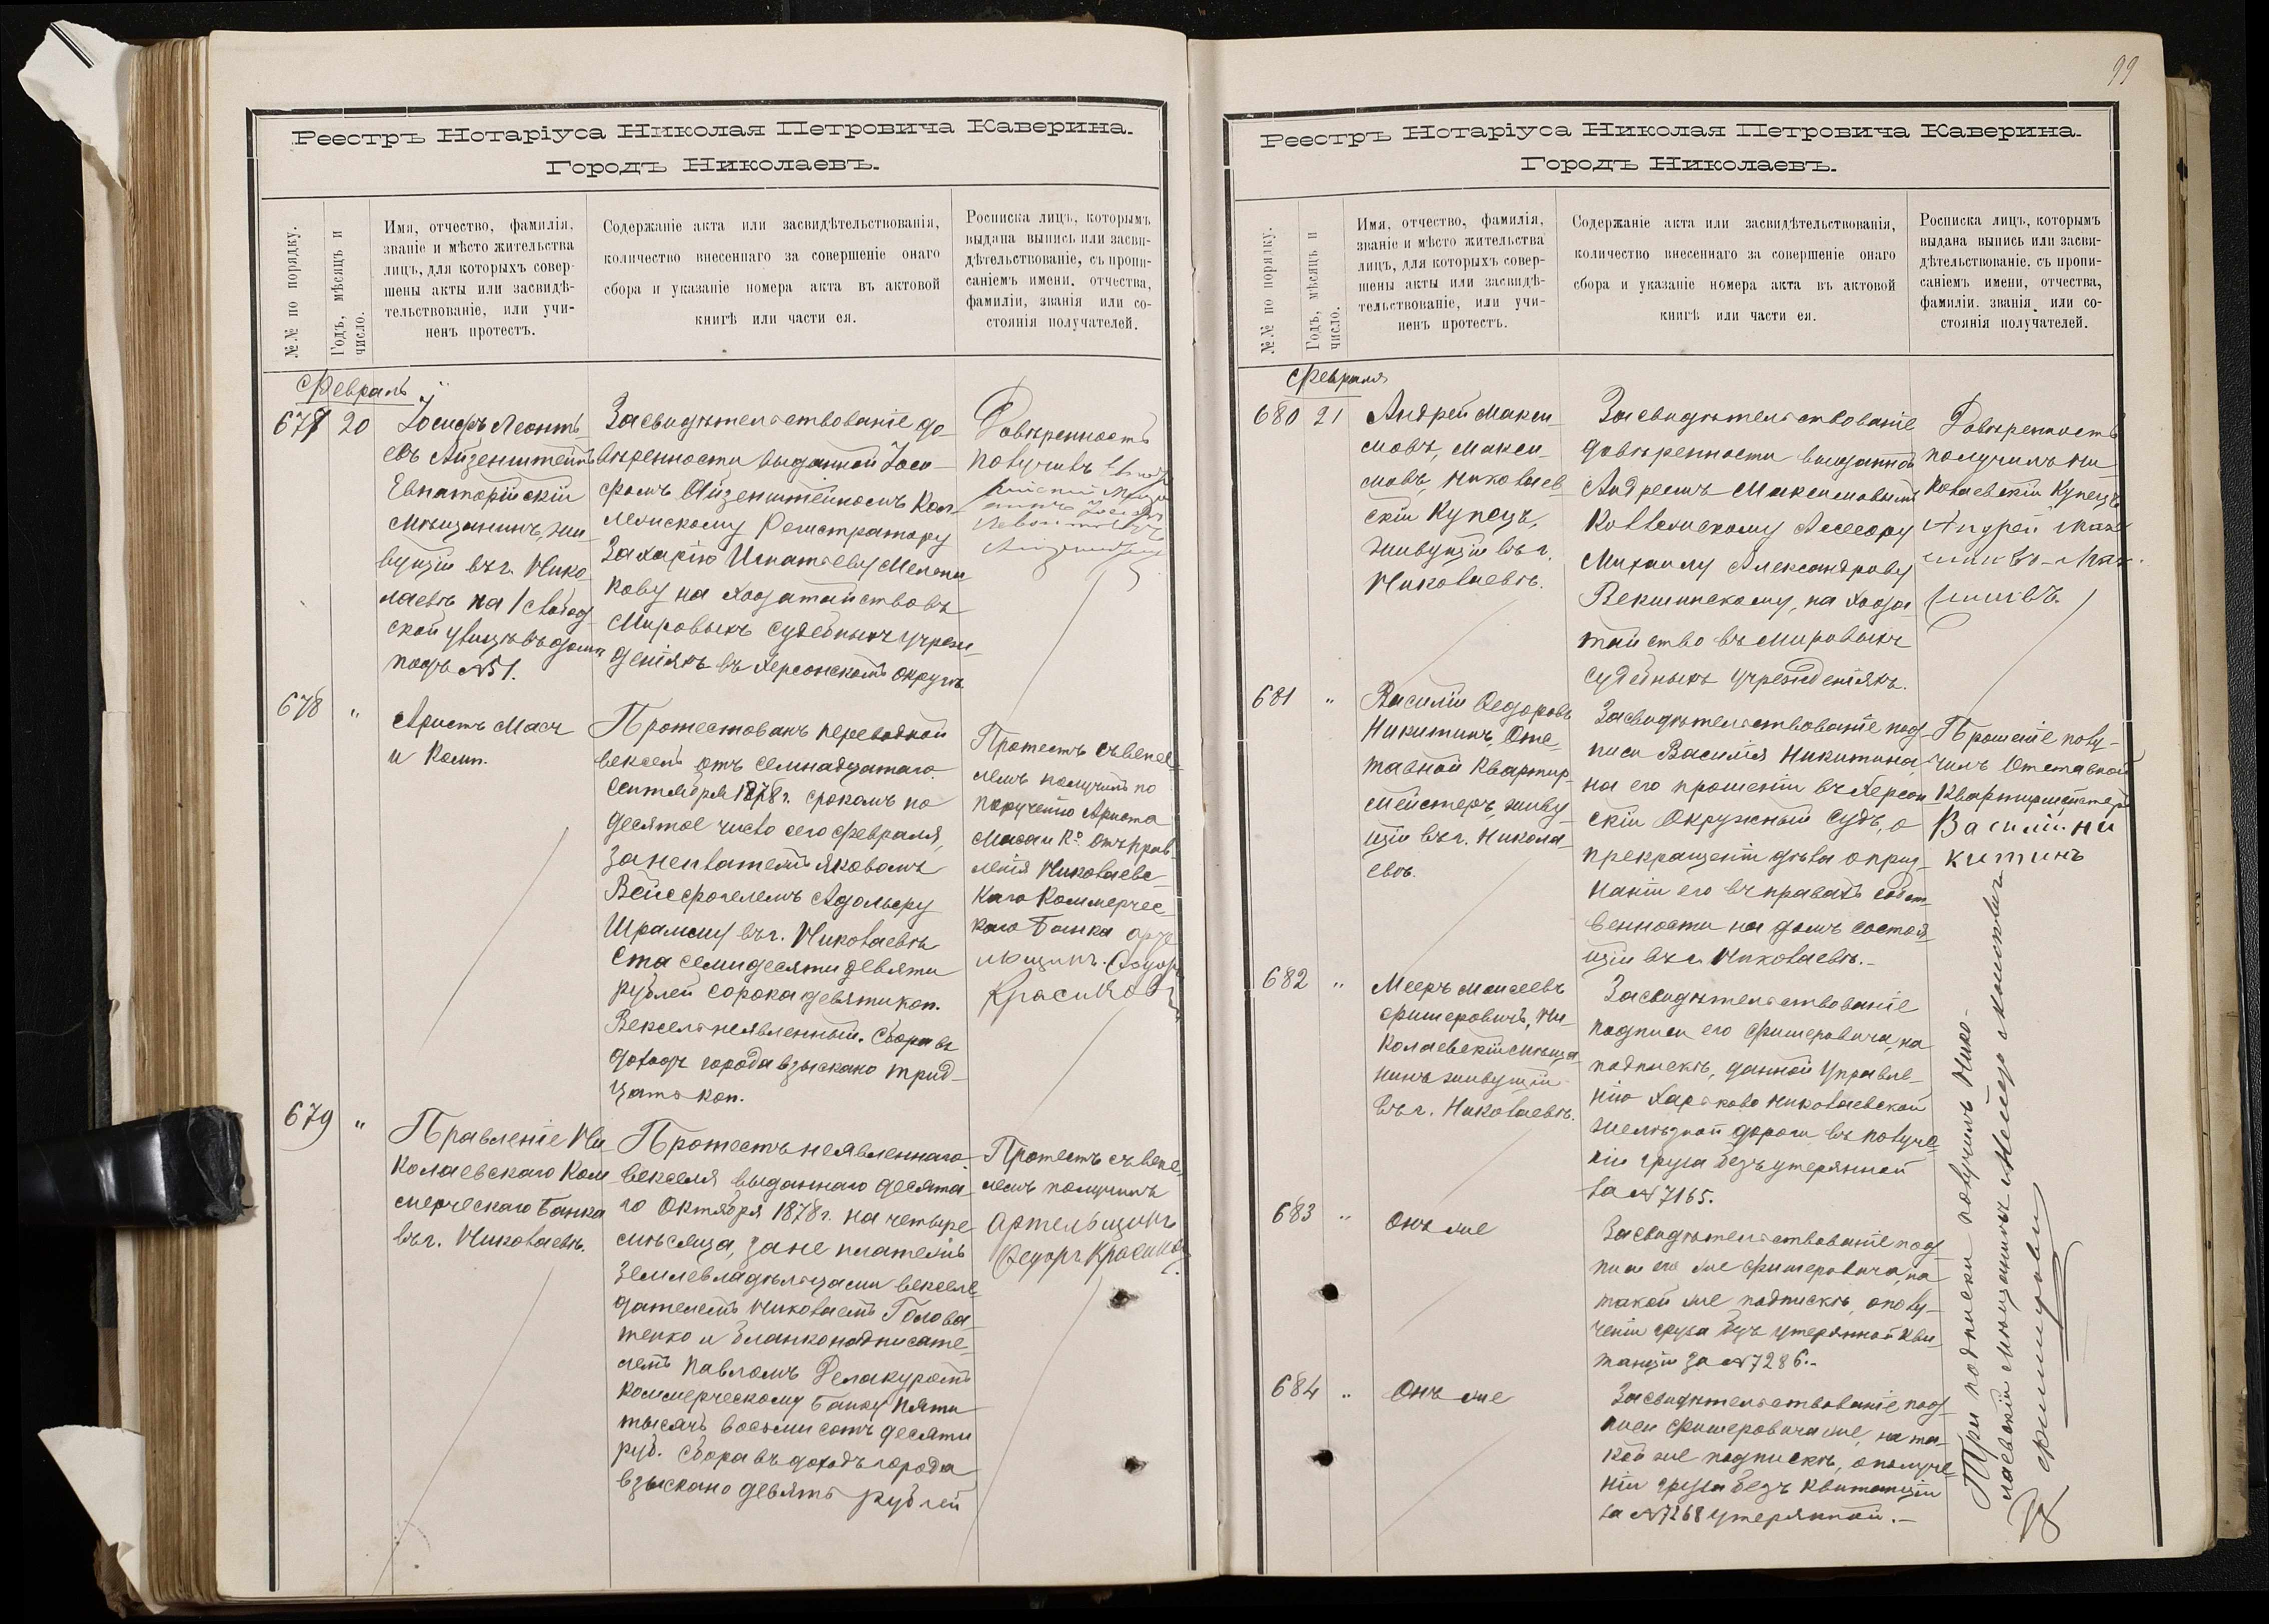 Реестръ Нотаріуса Николая Петровича Каверина.
Городъ Николаевъ.
№№ по порядку.
Годъ, мѣсяцъ и
число.
Имя, отчество, фамилія,
званіе и мѣсто жительства
лицъ, для которыхъ совер-
шены акты или засвидѣ-
тельствованіе, или учи-
ненъ протестъ.
Содержаніе акта или засвидѣтельствованія,
количество внесеннаго за совершеніе онаго
сбора и указаніе номера акта въ актовой
книгѣ или части ея.
Росписка лицъ, которымъ
выдана выпись или засви-
дѣтельствованіе, съ пропи-
саніемъ имени, отчества,
фамиліи, званія или со-
стоянія получателей.
Февраль
677 20
Іосифъ Леонть-
евъ Айзенштейнъ
Евпаторійскій
мѣщанинъ, жи-
вущій въ г. Нико-
лаевѣ на 1 Слобод-
ской улицѣ въ домѣ
подъ №51.
Засвидѣтельствованіе до-
вѣренности выданной Іоси-
фомъ Айзенштейномъ Кол-
лежскому Регистратору
Захарію Игнатьеву Мелени-
кову на ходатайство въ
Мировыхъ Судебныхъ Учреж-
деніяхъ въ Херсонскомъ округѣ.
Довѣренность
получилъ
678 "
Аристъ Масъ
и Комп.
Протестованъ переводной
вексель отъ семнадцатаго
Сентября 1878 г. срокомъ по
десятое число сего Февраля,
за неплатежъ Яковомъ
Вейсфогелемъ Адольфу
Шрамму въ г. Николаевѣ
Ста семидесяти девяти
рублей сорока девяти коп.
Вексель неявленный. Сбора въ
доходъ города взыскано трид-
цать коп.
Протестъ съ вексе-
лемъ получилъ по
порученію Ариста
Маса и К° отъ прав-
ленія Николаевс-
каго Коммерчес-
каго Банка арте-
льщикъ Федоръ
Красиков
679 "
Правленіе Ни-
колаевскаго Ком-
мерческаго Банка
въ г. Николаевѣ.
Протестъ неявленнаго
векселя выданнаго десята-
го Октября 1878 г. на четыре
мѣсяца, за не платежъ
Землевладѣльцами векселе-
дателемъ Николаемъ Голова-
тенко и бланконадписате-
лемъ Павломъ Делакуромъ
Коммерческому Банку пяти
тысячъ восьми сотъ десяти
руб. Сбора въ доходъ города
взыскано девять рублей
Протестъ съ вексе-
лемъ получилъ
Артельщикъ
Федоръ Красиков
99
Реестръ Нотаріуса Николая Петровича Каверина.
Городъ Николаевъ.
№№ по порядку.
Годъ, мѣсяцъ и
число.
Имя, отчество, фамилія,
званіе и мѣсто жительства
лицъ, для которыхъ совер-
шены акты или засвидѣ-
тельствованіе, или учи-
ненъ протестъ.
Содержаніе акта или засвидѣтельствованія,
количество внесеннаго за совершеніе онаго
сбора и указаніе номера акта въ актовой
книгѣ или части ея.
Росписка лицъ, которымъ
выдана выпись или засви-
дѣтельствованіе. съ пропи-
саніемъ имени, отчества,
фамиліи. званія или со-
стоянія получателей.
Февраля
680 21
Андрей Макси-
мовъ, Макси-
мовъ, Николаев-
скій Купецъ,
живущій въ г.
Николаевѣ.
Засвидѣтельствованіе
довѣренности выданной
Андреемъ Максимовымъ
Коллежскому Ассесору
Михаилу Александрову
Векшинскому, на хода-
тайство въ Мировыхъ
Судебныхъ Учрежденіяхъ.
Довѣренность
получилъ Ни
колаевскій Купецъ
Андрей Мак
681 "
Василій Федоровъ
Никитинъ, Отс-
тавной Квартир-
мейстеръ, живу-
щій въ г. Никола-
евѣ.
Засвидѣтельствованіе под-
писи Василія Никитина,
на его прошеніи въ Херсон
скій Окружный Судъ, о
прекращеніи дѣла о приз-
наніи его въ правахъ собст-
венности на домъ состоя-
щій въ г. Николаевѣ.-
Прошеніе полу-
чилъ Отставной
Квартирмейстеръ
Василій Ни
китинъ
682 "
Мееръ Моисеевъ
Фишеровичъ, Ни-
колаевскій мѣща-
нинъ живущій
въ г. Николаевѣ.
Засвидѣтельствованіе
подписи его Фишеровича, на
подпискѣ, данной Управле-
нію Харьково Николаевской
желѣзной дороги въ получе-
ніи груза безъ утерянной
за №7165.
683 "
Онъ же
Засвидѣтельствованіе под-
писи его же Фишеровича, на
такой же подпискѣ, о полу-
ченіи груза безъ утерянной кви
танціи за №7286.-
684 "
Онъ же
Засвидѣтельствованіе под-
писи Фишеровича же, на та-
кой же подпискѣ, о получе-
ніи груза безъ квитанціи
за №7268 утерянной.-
Три подписки получилъ Нико-
лаевскій мѣщанинъ Мейеръ
Фишерович